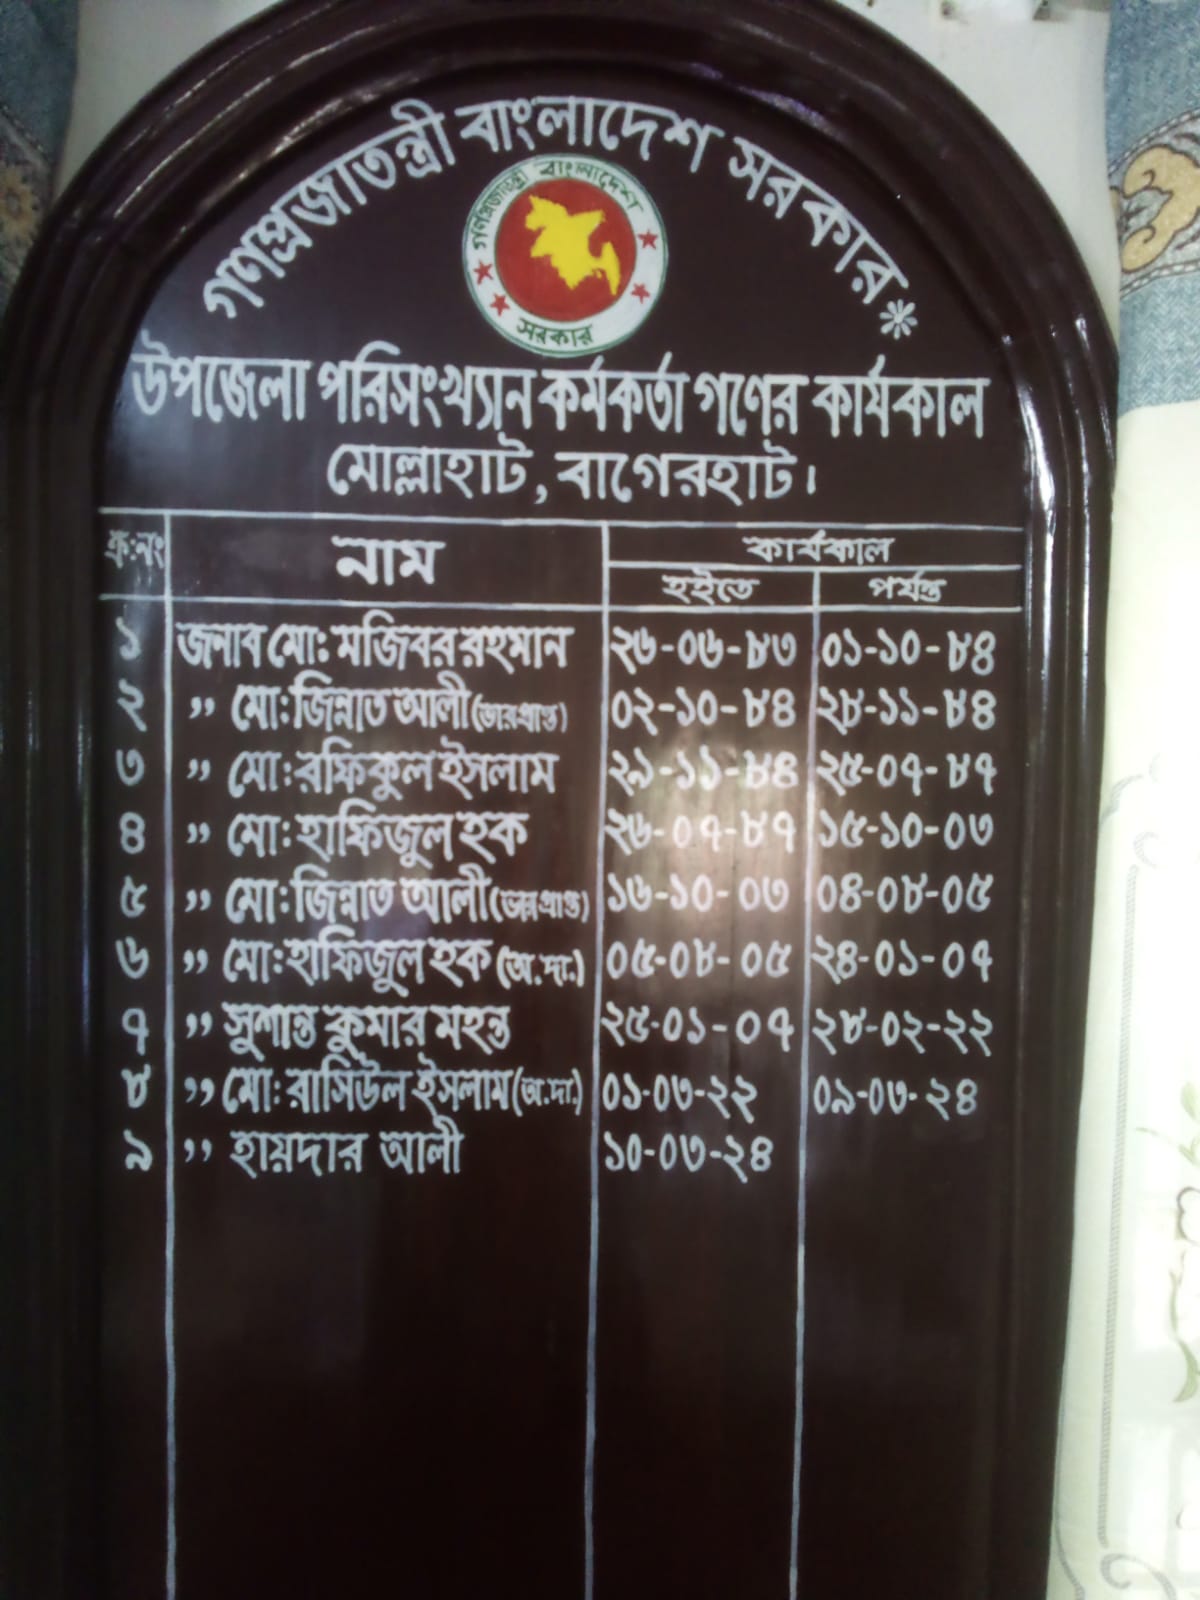 গণপ্রজাতন্ত্রী বাংলাদেশ সরকার
গণপ্রজাতন্ত্রী বাংলাদেশ
সরকার
উপজেলা পরিসংখ্যান কর্মকর্তা গণের কার্যকাল
মোল্লাহাট, বাগেরহাট।
ক্র:নং নাম কার্যকাল
হইতে পর্যন্ত
১ জনাব মো: মজিবর রহমান ২৬-০৬-৮৩ ০১-১০-৮৪
২ ,, মো: জিন্নাত আলী (ভারপ্রাপ্ত) ০২-১০-৮৪ ২৮-১১-৮৪
৩ ,, মো: রফিকুল ইসলাম ২৯-১১-৮৪ ২৫-০৭-৮৭
৪ ,, মো: হাফিজুল হক ২৬-০৭-৮৭ ১৫-১০-০৩
৫ ,, মো: জিন্নাত আলী (ভারপ্রাপ্ত) ১৬-১০-০৩ ০৪-০৮-০৫
৬ ,, মো: হাফিজুল হক (অ.দা.) ০৫-০৮-০৫ ২৪-০১-০৭
৭ ,, সুশান্ত কুমার মহন্ত ২৫-০১-০৭ ২৮-০২-২২
৮ ,, মো: রাসিউল ইসলাম (অ.দা.) ০১-০৩-২২ ০৯-০৩-২৪
৯ ,, হায়দার আলী ১০-০৩-২৪